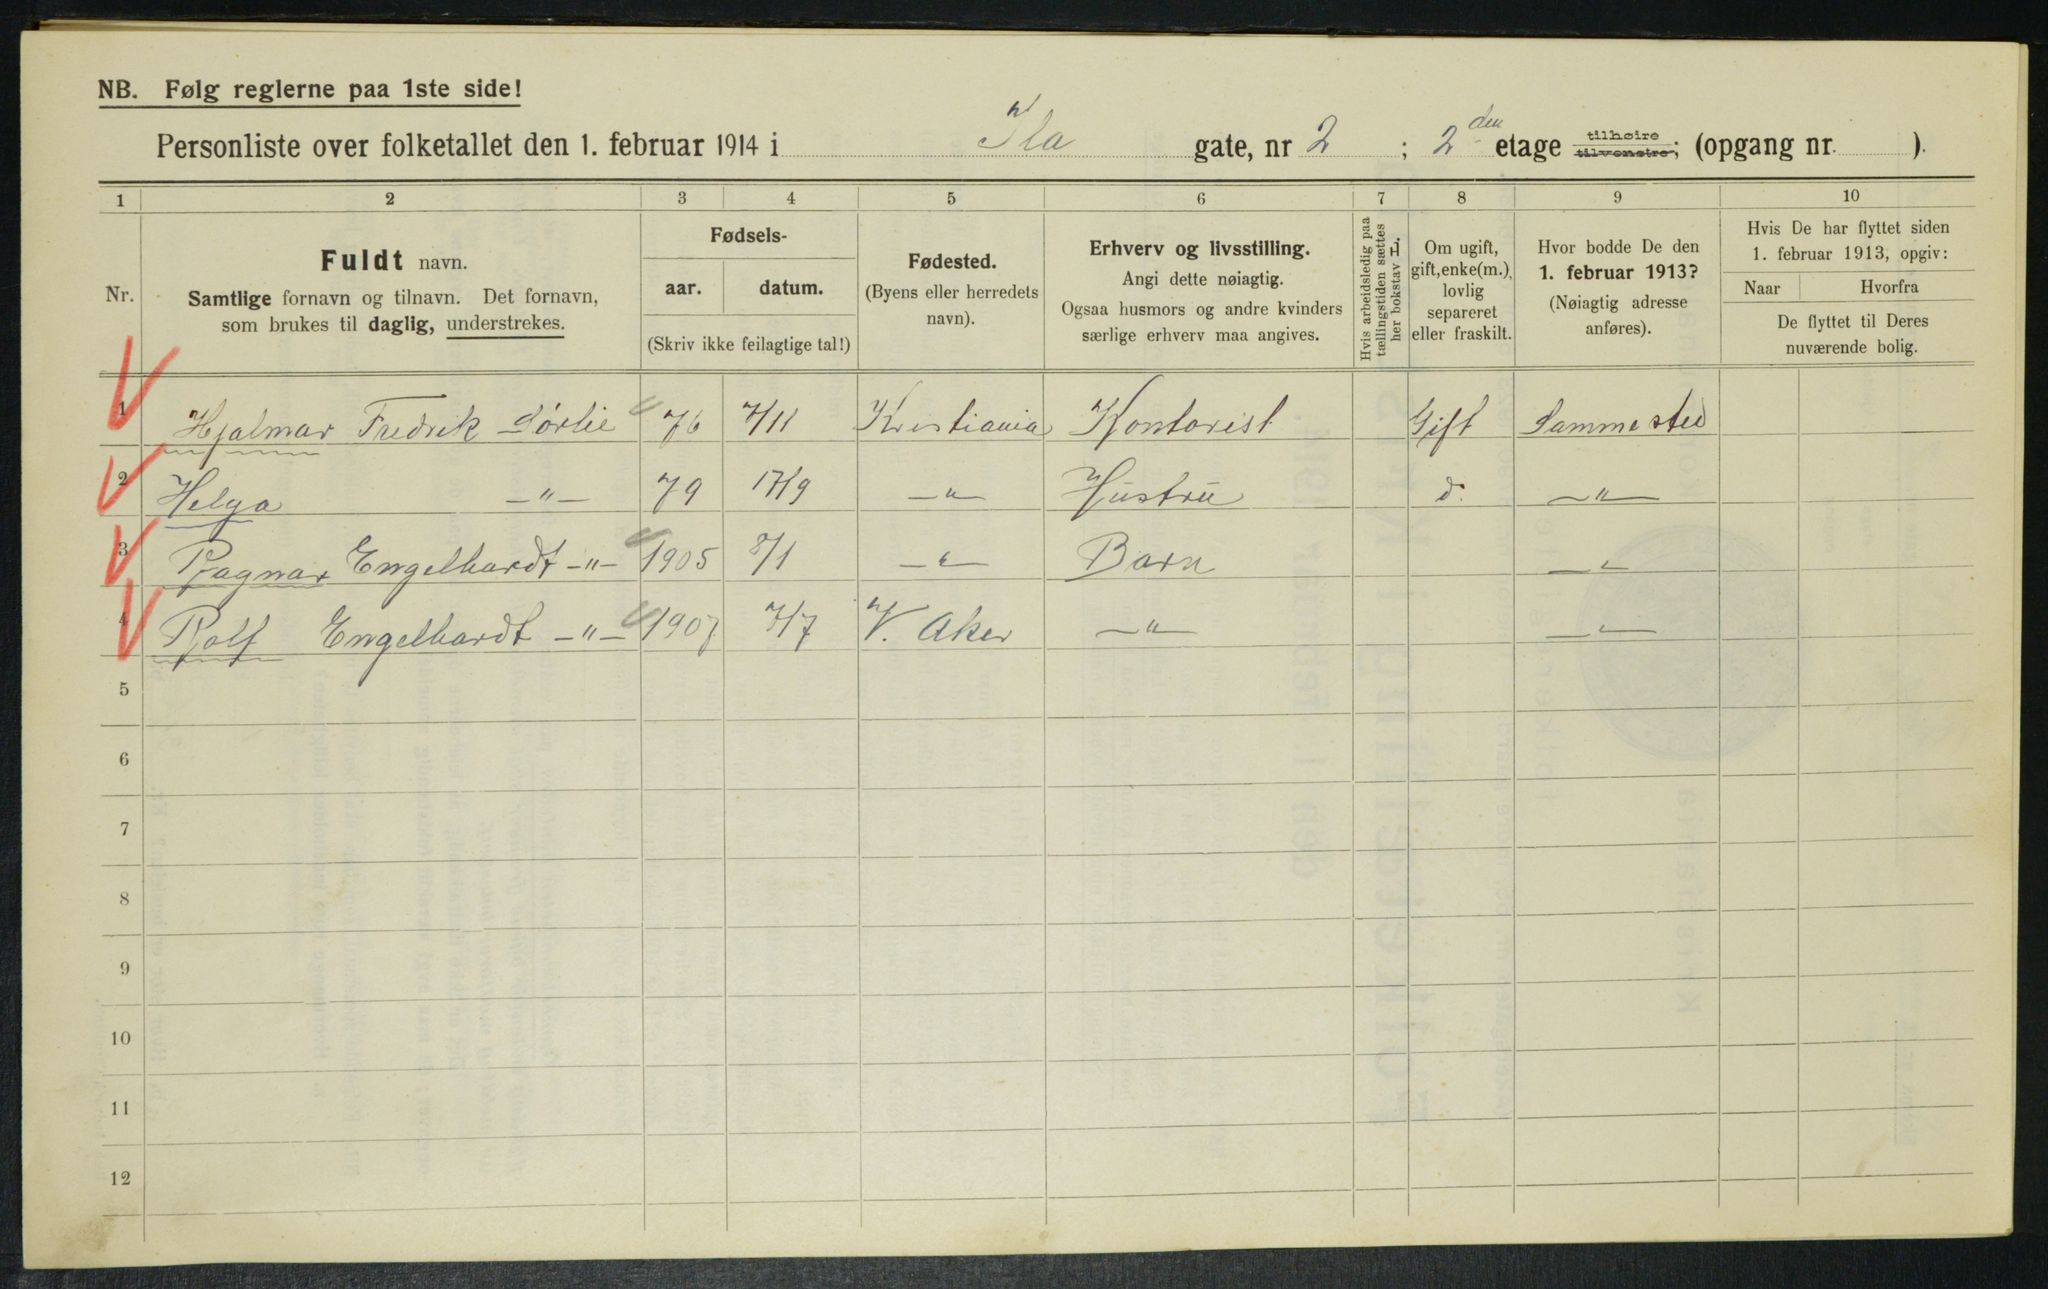 NB. Følg reglerne paa 1ste side!
Personliste over folketallet den 1. februar 1914 i Ila gate, nr 2 ; 2den etage tilhøire tilvenstre; (opgang nr. ).
1 2 3 4 5 6 7 8 9 10
Nr.
Fuldt navn.
Samtlige fornavn og tilnavn. Det fornavn,
som brukes til daglig, understrekes.
Fødsels-
aar. datum.
(Skriv ikke feilagtige tal!)
Fødested.
(Byens eller herredets
navn).
Erhverv og livsstilling.
Angi dette nøiagtig.
Ogsaa husmors og andre kvinders
særlige erhverv maa angives.
Hvis arbeidsledig paa
tællingstiden sættes
her bokstav L.
Om ugift,
gift, enke(m.),
lovlig
separeret
eller fraskilt.
Hvor bodde De den
1. februar 1913?
(Nøiagtig adresse
anføres).
Hvis De har flyttet siden
1. februar 1913, opgiv:
Naar Hvorfra
De flyttet til Deres
nuværende bolig.
1 Hjalmar Fredrik Sørlie 76 7/11 Kristiania Kontorist Gift Sammested
2 Helga —"— 79 17/9 —"— Hustru d. —"—
3 Ragnar Engelhardt —"— 1905 8/1 —"— Barn —"—
4 Rolf Engelhardt —"— 1907 7/7 V. Aker —"— —"—
5
6
7
8
9
10
11
12